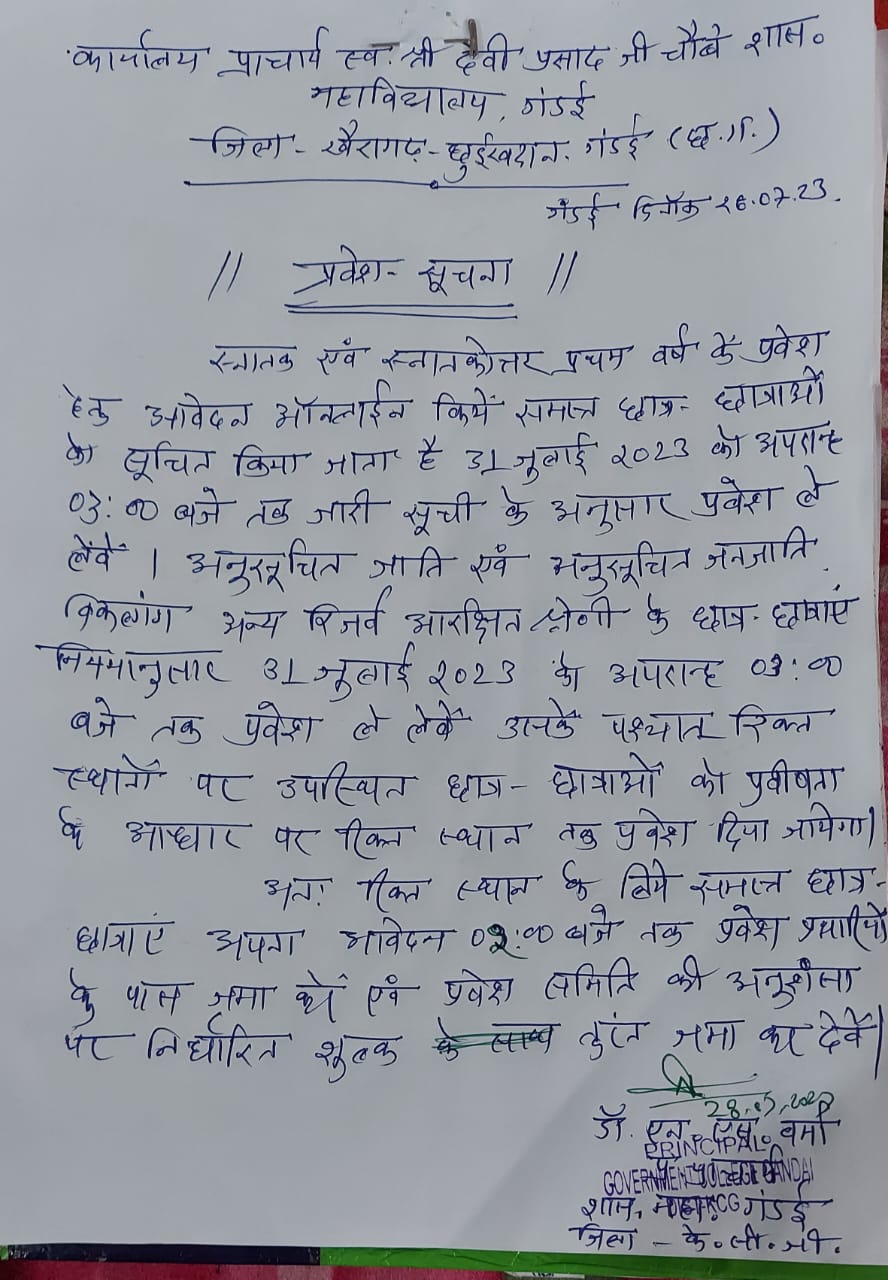 कार्यालय प्राचार्य स्व. श्री देवी प्रसाद जी चौबे शास.
महाविद्यालय, गंडई
जिला - खैरागढ़ - छुईखदान. गंडई (छ.ग.)
गंडई दिनाँक 28.07.23.
// प्रवेश - सूचना //
स्नातक एवं स्नातकोत्तर प्रथम वर्ष के प्रवेश
हेतु आवेदन ऑनलाईन किये समस्त छात्र - छात्राओं
को सूचित किया जाता है 31 जुलाई 2023 को अपरान्ह
03:00 बजे तक जारी सूची के अनुसार प्रवेश ले
लेवें । अनुसूचित जाति एवं अनुसूचित जनजाति
विकलांग अन्य रिजर्व आरक्षित श्रेणी के छात्र - छात्राएं
नियमानुसार 31 जुलाई 2023 को अपरान्ह 03:00
बजे तक प्रवेश ले लेवें उसके पश्चात रिक्त
स्थानों पर उपस्थित छात्र - छात्राओं को प्रवीणता
के आधार पर रिक्त स्थान तक प्रवेश दिया जायेगा।
अतः रिक्त स्थान के लिये समस्त छात्र -
छात्राएं अपना आवेदन 02:00 बजे तक प्रवेश प्रभारियों
के पास जमा करें एवं प्रवेश समिति की अनुशंसा
पर निर्धारित शुल्क तुरंत जमा कर देवें।
डॉ. एन. एस. वर्मा
PRINCIPAL
GOVERNMENT COLLEGE GANDAI
शास. गंडई
जिला - के.सी.जी.